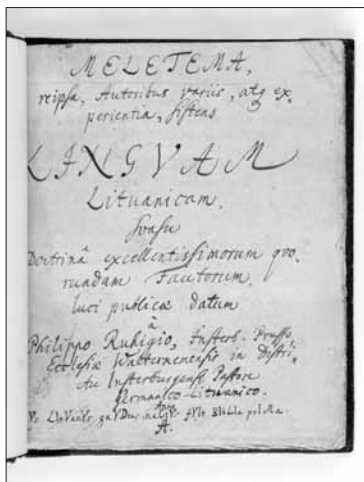 MELETEMA,
reipsa, Autoribus variis, atq ex,
perientia, sistens
LINGVAM
Lituanicam.
svasu
Doctrinâ excellentissimorum quo,
rundam Fautorum,
luci publicæ datum
â
Philippo Ruhigio, Insterb. Prusso
Ecclesiæ Walternensis in Distri,
ctu Insterburgensi Pastore
Germanico-Lituanico.
Anno
A.